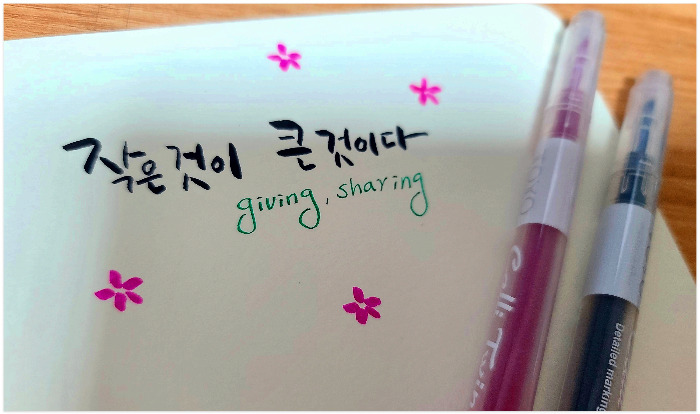 작은것이 큰것이다
giving, sharing
TOYO
Calli Twin
Detailed marking